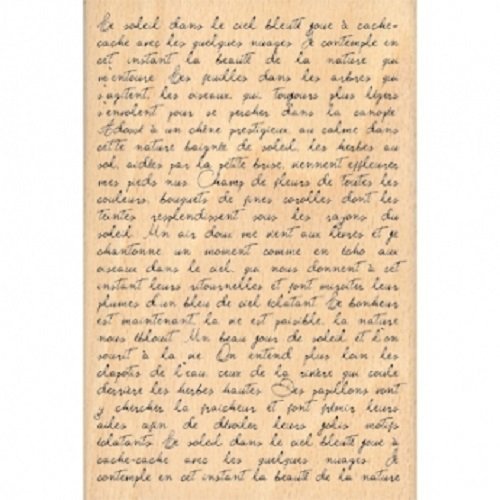 Le soleil dans le ciel bleuté joue à cache-
cache avec les quelques nuages. Je contemple en
cet instant la beauté de la nature qui
m'entoure. Les feuilles dans les arbres qui
s'agitent, les oiseaux, qui, toujours plus légers
s'envolent pour se percher dans la canopée.
Adossé à un chêne prestigieux, au calme dans
cette nature baignée de soleil, les herbes au
sol, aidées par la petite brise, viennent effleurer
mes pieds nus. Champ de fleurs de toutes les
couleurs, bouquets de fines corolles dont les
teintes resplendissent sous les rayons du
soleil. Un air doux me vient aux lèvres et je
chantonne un moment comme en écho aux
oiseaux dans le ciel, qui nous donnent à cet
instant leurs ritournelles et font miroiter leurs
plumes d'un bleu de ciel éclatant. Le bonheur
est maintenant, la vie est paisible, la nature
nous éblouit. Un beau jour de soleil et l'on
sourit à la vie. On entend plus loin les
clapotis de l'eau, ceux de la rivière qui coule
derrière les herbes hautes. Des papillons vont
y chercher la fraicheur et font frémir leurs
ailes afin de dévoiler leurs jolis motifs
éclatants. Le soleil dans le ciel bleuté joue à
cache-cache avec les quelques nuages. Je
contemple en cet instant la beauté de la nature